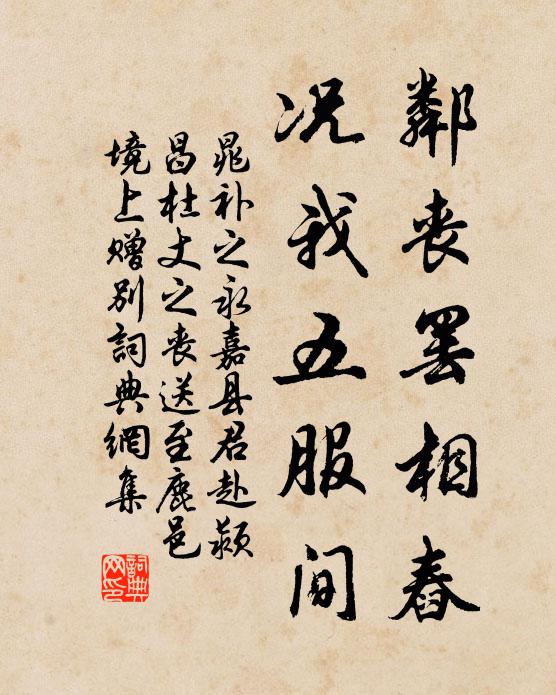 鄰喪罢相舂
况我五服间
晁补之永嘉县君赴颍
昌杜丈之喪送至鹿邑
境上赠别詞典網集
詞典
网印